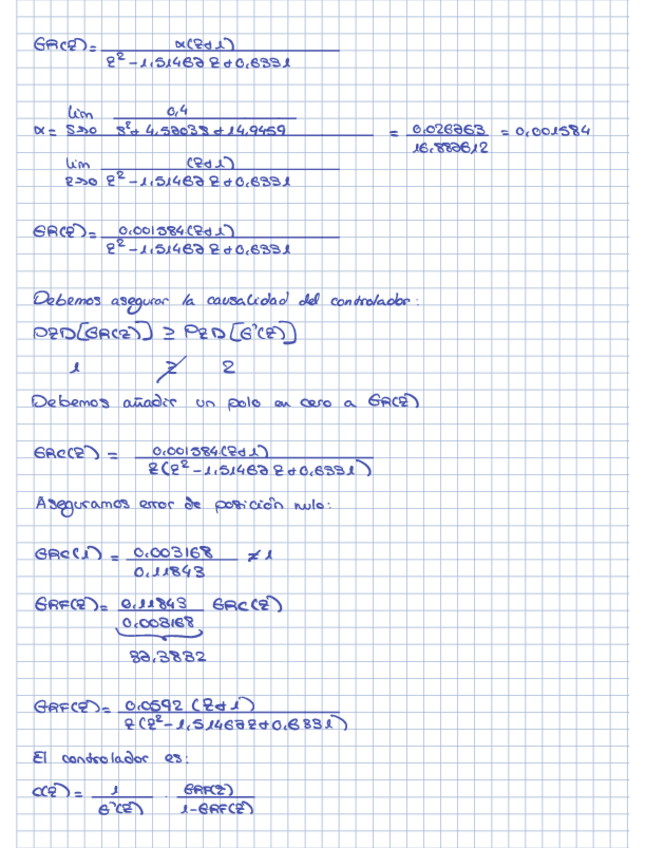 GR(z) = α(z+1) / z² - 1,51467 z + 0,6331
α = lim s→0 0,4 / s² + 4,57038 + 14,9459 / lim z→0 (z+1) / z² - 1,51467 z + 0,6331 = 0,026763 / 16,887612 = 0,001584
GR(z) = 0,001584(z+1) / z² - 1,51467 z + 0,6331
Debemos asegurar la causalidad del controlador:
PZD[GR(z)] ≥ PZD[G'(z)]
1 ≱ 2
Debemos añadir un polo en cero a GR(z)
GRC(z) = 0,001584(z+1) / z(z² - 1,51467 z + 0,6331)
Aseguramos error de posición nulo:
GRC(1) = 0,003168 / 0,11843 ≠ 1
GRF(z) = 0,11843 / 0,003168 GRC(z)
37,3832
GRF(z) = 0,0592 (z+1) / z(z² - 1,51467 z + 0,6331)
El controlador es:
C(z) = 1 / G'(z) · GRF(z) / 1 - GRF(z)